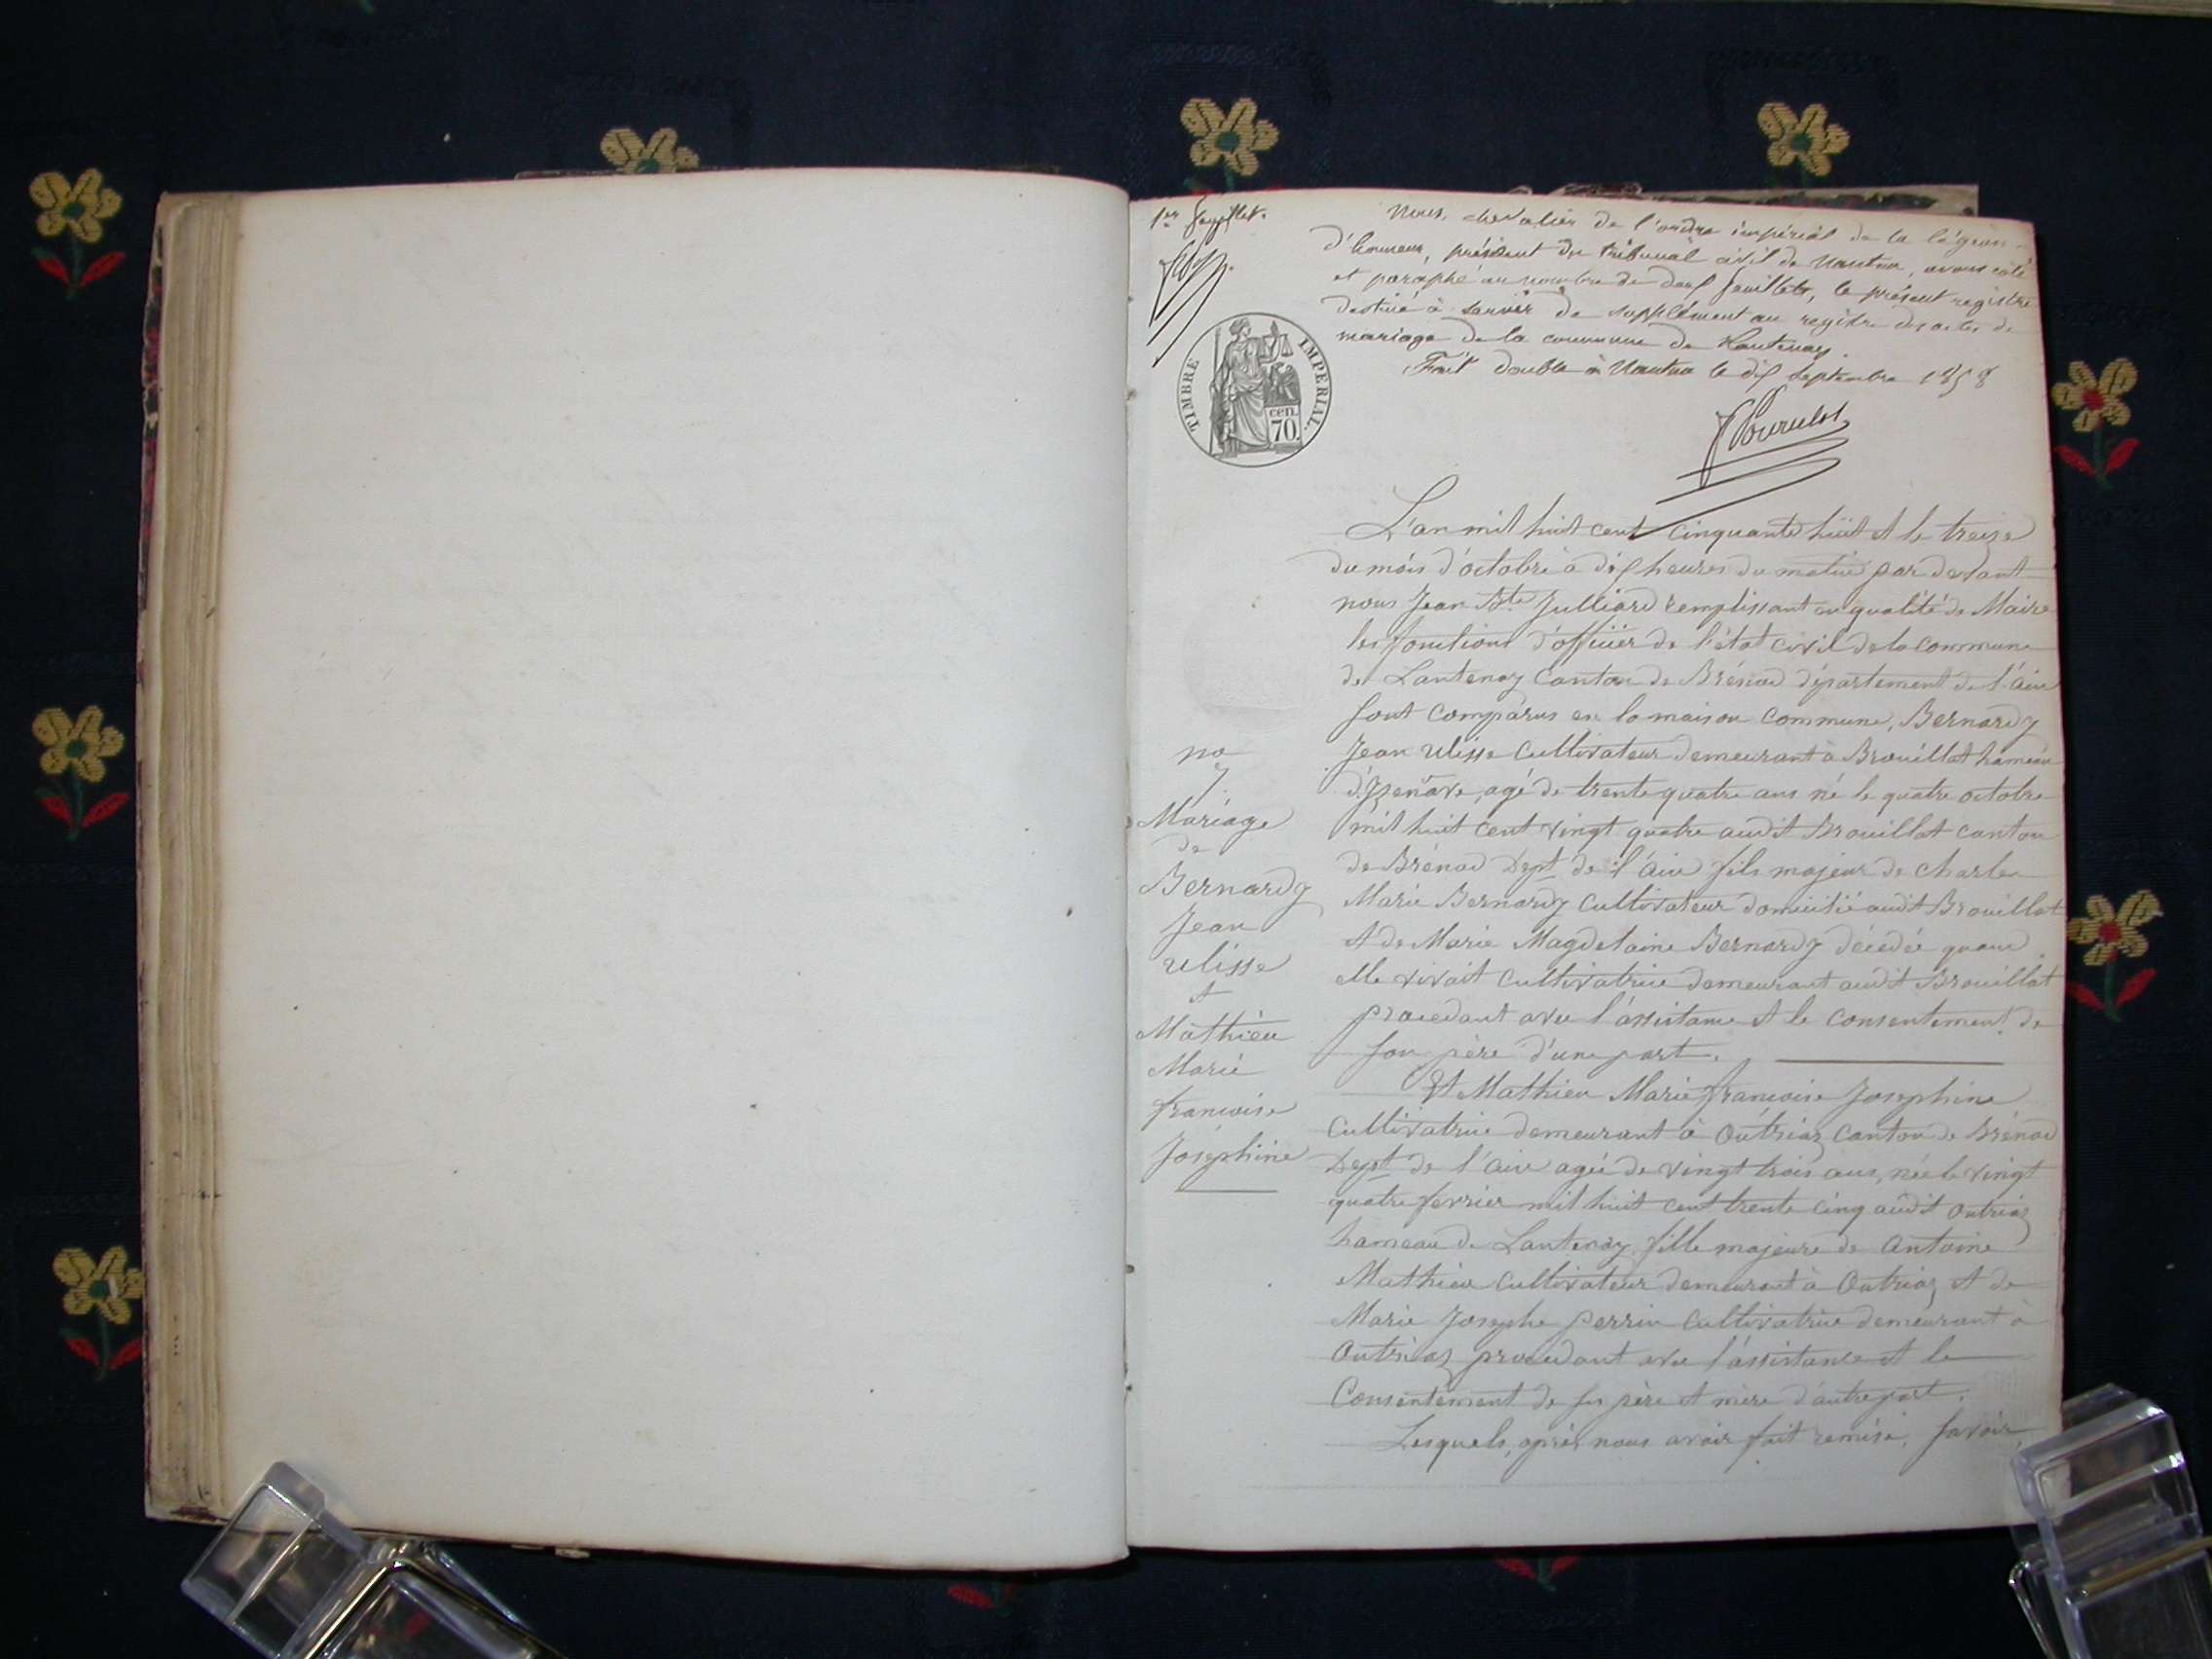 1er feuillet.
Nous, chevalier de l'ordre impérial de la légion
d'honneur, président du tribunal civil de Nantua, avons coté
et paraphé au nombre de deux feuillets, le présent registre
destiné à servir de supplément au registre des actes de
mariage de la commune de Lantenay.
Fait double à Nantua le dix septembre 1858
TIMBRE IMPERIAL.
cen.
70.
L'an mil huit cent cinquante huit et le treize
du mois d'octobre à dix heures du matin par devant
nous Jean Bte Julliard remplissant en qualité de Maire
les fonctions d'officier de l'état civil de la commune
de Lantenay Canton de Brénod département de l'ain
sont comparus en la maison commune, Bernardy
Jean Ulisse cultivateur demeurant à Brouillat hameau
d'Izenave, agé de trente quatre ans né le quatre octobre
mil huit cent vingt quatre audit Brouillat canton
de Brénod Dept de l'ain fils majeur de Charles
Marie Bernardy cultivateur domicilié audit Brouillat
et de Marie Magdelaine Bernardy décédée quand
elle vivait cultivatrice demeurant audit Brouillat
procedant avec l'assistance et le consentement de
son père d'une part.
Et Mathieu Marie françoise Josephine
cultivatrice demeurant à Outriaz canton de Brénod
Dept de l'ain agée de vingt trois ans, née le vingt
quatre fevrier mil huit cent trente cinq audit Outriaz
hameau de Lantenay, fille majeure de Antoine
Mathieu cultivateur demeurant à Outriaz et de
Marie Josephe Perrin cultivatrice demeurant à
Outriaz procedant avec l'assistance et le
Consentement de ses père et mère d'autre part.
Lesquels, après nous avoir fait remise, savoir,
no
7.
Mariage
de
Bernardy
Jean
Ulisse
et
Mathieu
Marie
françoise
Joséphine